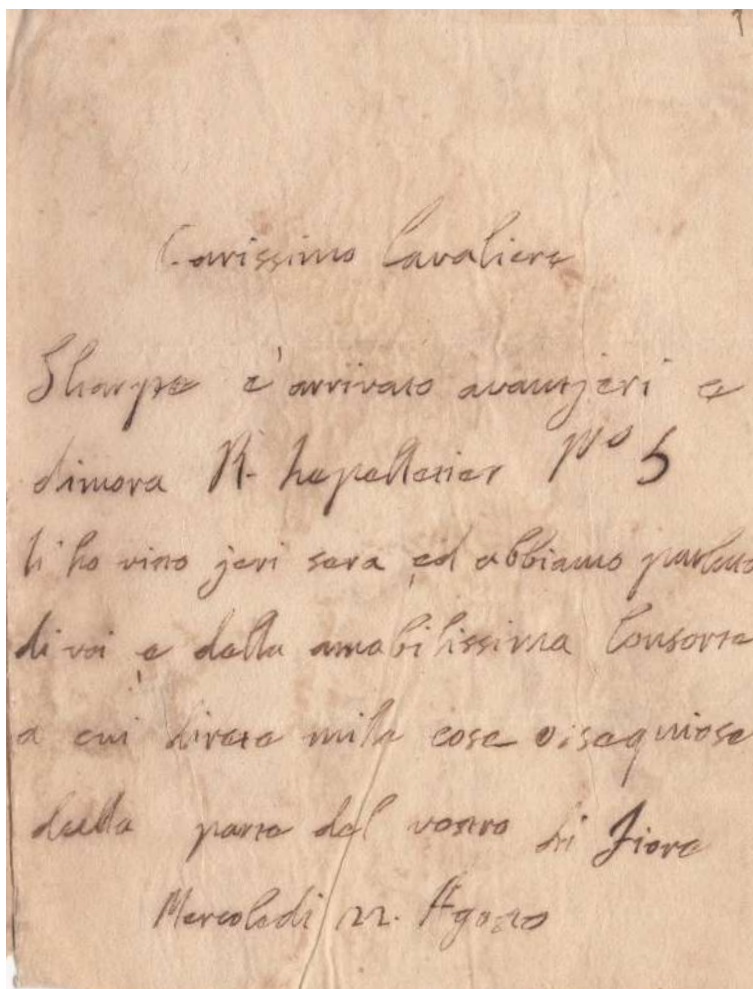 Carissimo Cavaliere
Sharpe è arrivato avantjeri e
dimora R. Lepelletier N° 5
li ho visto jeri sera ed abbiamo parlato
di voi e della amabilissima Consorte
a cui direte mille cose ossequiose
dalla parte del vostro di Fiore
Mercoledi 22. Agosto